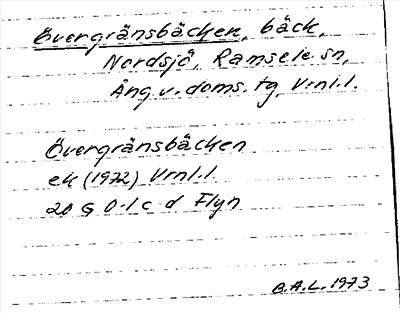 Övergränsbäcken, bäck,
Nordsjö, Ramsele sn,
Ång.v.doms.tg, Vrnl.l.
Övergränsbäcken
ek (1972) Vrnl.l.
20 G 0-1 c d Flyn
B.A.L. 1973